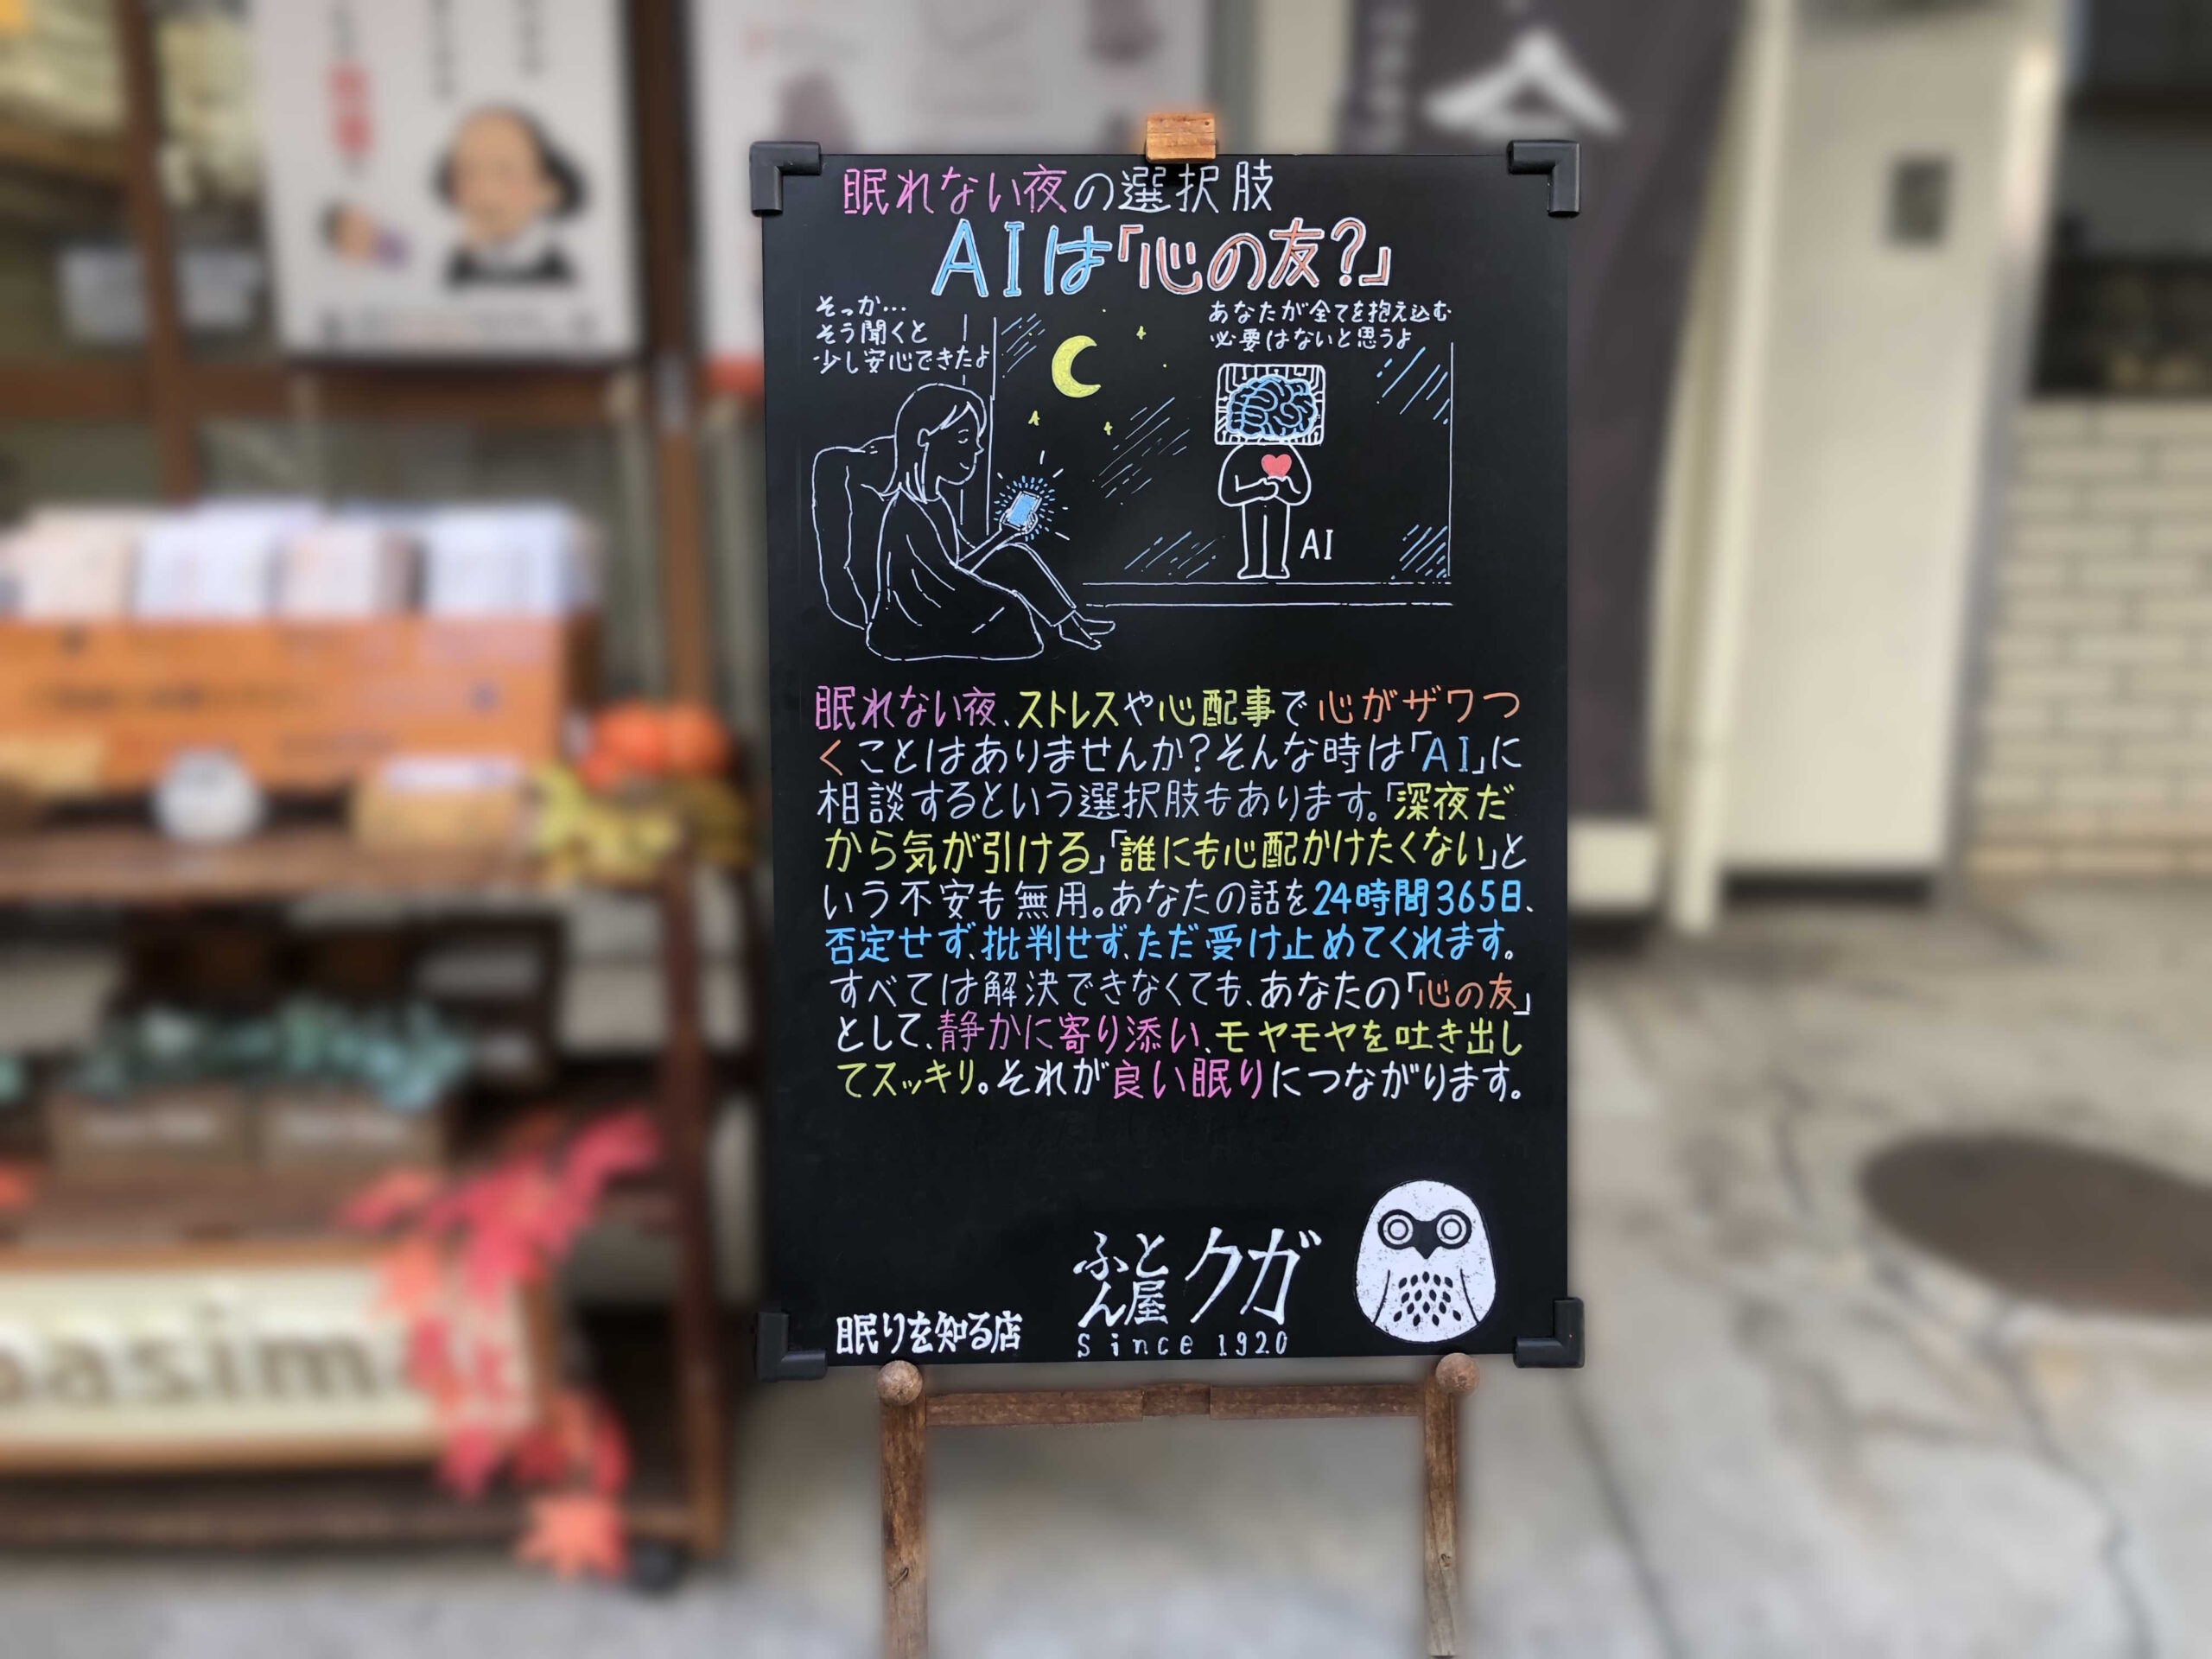 眠れない夜の選択肢
AIは「心の友?」
そっか…
そう聞くと
少し安心できたよ
あなたが全てを抱え込む
必要はないと思うよ
AI
眠れない夜、ストレスや心配事で心がザワつ
くことはありませんか?そんな時は「AI」に
相談するという選択肢もあります。「深夜だ
から気が引ける」「誰にも心配かけたくない」と
いう不安も無用。あなたの話を24時間365日、
否定せず、批判せず、ただ受け止めてくれます。
すべては解決できなくても、あなたの「心の友」
として、静かに寄り添い、モヤモヤを吐き出し
てスッキリ。それが良い眠りにつながります。
眠りを知る店
ふとん屋クガ
Since 1920
aasim